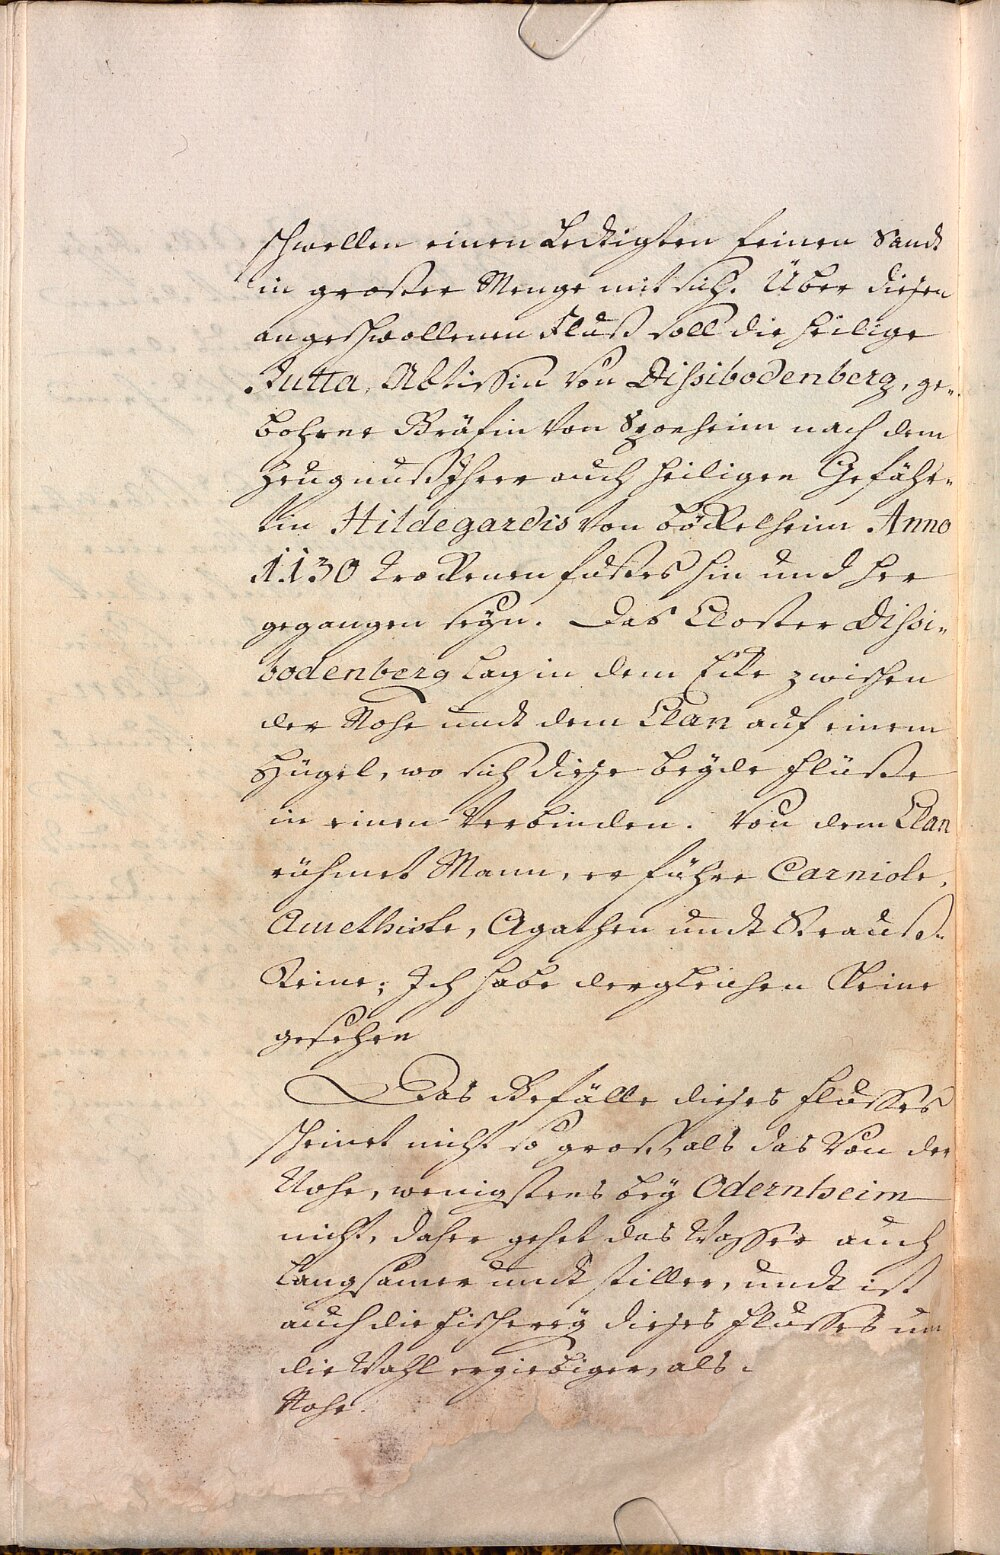 schwellen einen lettigten feinen Sandt
in grosser Menge mit sich. Über diesen
angeschwollenen Fluß soll die heilige
Jutta, Abtissin von Dissibodenberg, ge„
bohrne Gräfin von Sponheim nach dem
Zeugnuß Ihrer auch heiligen Gefähr„
tin Hildegardis von Böckelheim Anno
1130 trockenen fusses hin und her
gegangen seÿn. Das Closter Dissi„
bodenberg lag in dem Ecke zwischen
der Nohe undt dem Clan auf einem
Hügel, wo sich diese beÿde flüsse
in einen Verbinden. Von dem Clan
rühmet Mann, er führe Carniole,
Amethiste, Agathen undt Strauß„
Steine; Ich habe dergleichen Keine
gesehen
Das Gefälle dieses Flusses
scheinet nicht so groß, als das von der
Nohe, wenigstens beÿ Odernheim
nicht, daher gehet das Wasser auch
langsamer undt stiller, undt ist
auch die fischereÿ dieses Flusses um
die Wahl ergiebiger, als
Nohe.